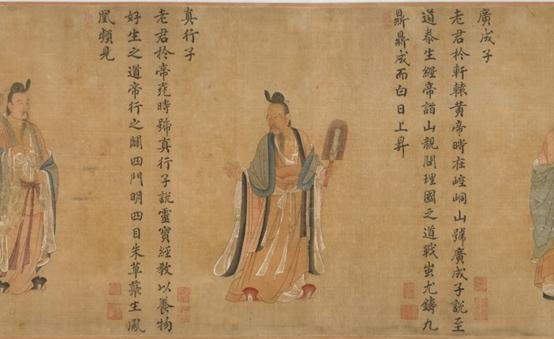 廣成子
老君扵軒轅黃帝時在崆峒山號廣成子說至
道泰生經帝詣山親問理國之道戰蚩尤鑄九
鼎鼎成而白日上昇
真行子
老君扵帝堯時號真行子說靈寶經教以養物
好生之道帝行之闢四門明四目朱草藂生鳳
凰頻見